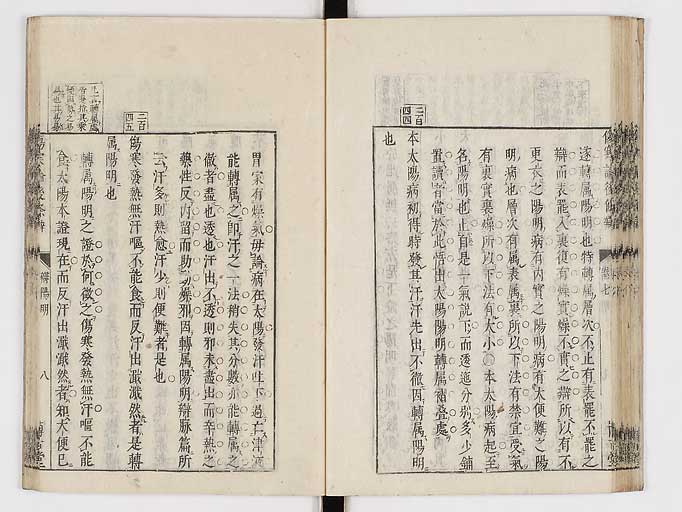 遂轉屬陽明也特轉屬層次不止有表罷不罷之
辯而表罷入裏復有燥實燥不實之辯所以有不
更衣之陽明病有內實之陽明病有大便難之陽
明病也層次有屬表屬裏所以下法有禁宜受氣
有裏實裏燥所以下法有大小本太陽病起至
名陽明也止皆是一氣說下而透迤分別多少鋪
置讀者當於此悟出太陽陽明轉屬霤疊處
二百四四
本太陽病初得時發其汗汗先出不徹因轉屬陽明
也
胃家有燥氣毋論病在太陽發汗吐下過亡津液
能轉屬之即汗之一法稍失其分數亦能轉屬之
徹者盡也透也汗出不透則邪未盡出而辛熱之
藥性反內留而助動燥邪因轉屬陽明辯脉篇所
云汗多則熱愈汗少則便難者是也
二百四五
傷寒發熱無汗嘔不能食而反汗出濈濈然者是轉
屬陽明也
轉屬陽明之證於何徵之傷寒發熱無汗嘔不能
食太陽本證現在而反汗出濈濈然者知大便已
辯陽明
八
卷七